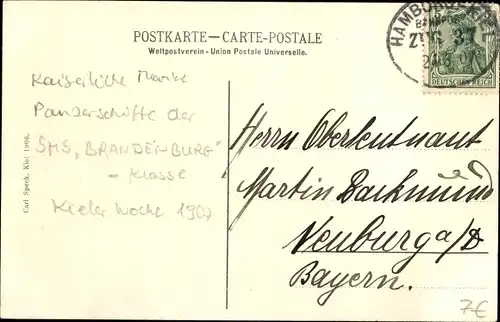 POSTKARTE – CARTE-POSTALE
Weltpostverein - Union Postale Universelle.
BAHNPOST
ZUG 37
DEUTSCHES REICH
Kaiserliche Marine
Panzerschiffe der
SMS „BRANDENBURG"
- Klasse
Kieler Woche 1907
Carl Speck, Kiel 1906.
Herrn Oberleutnant
Martin Bachmund
Neuburg a/D
Bayern.
7€